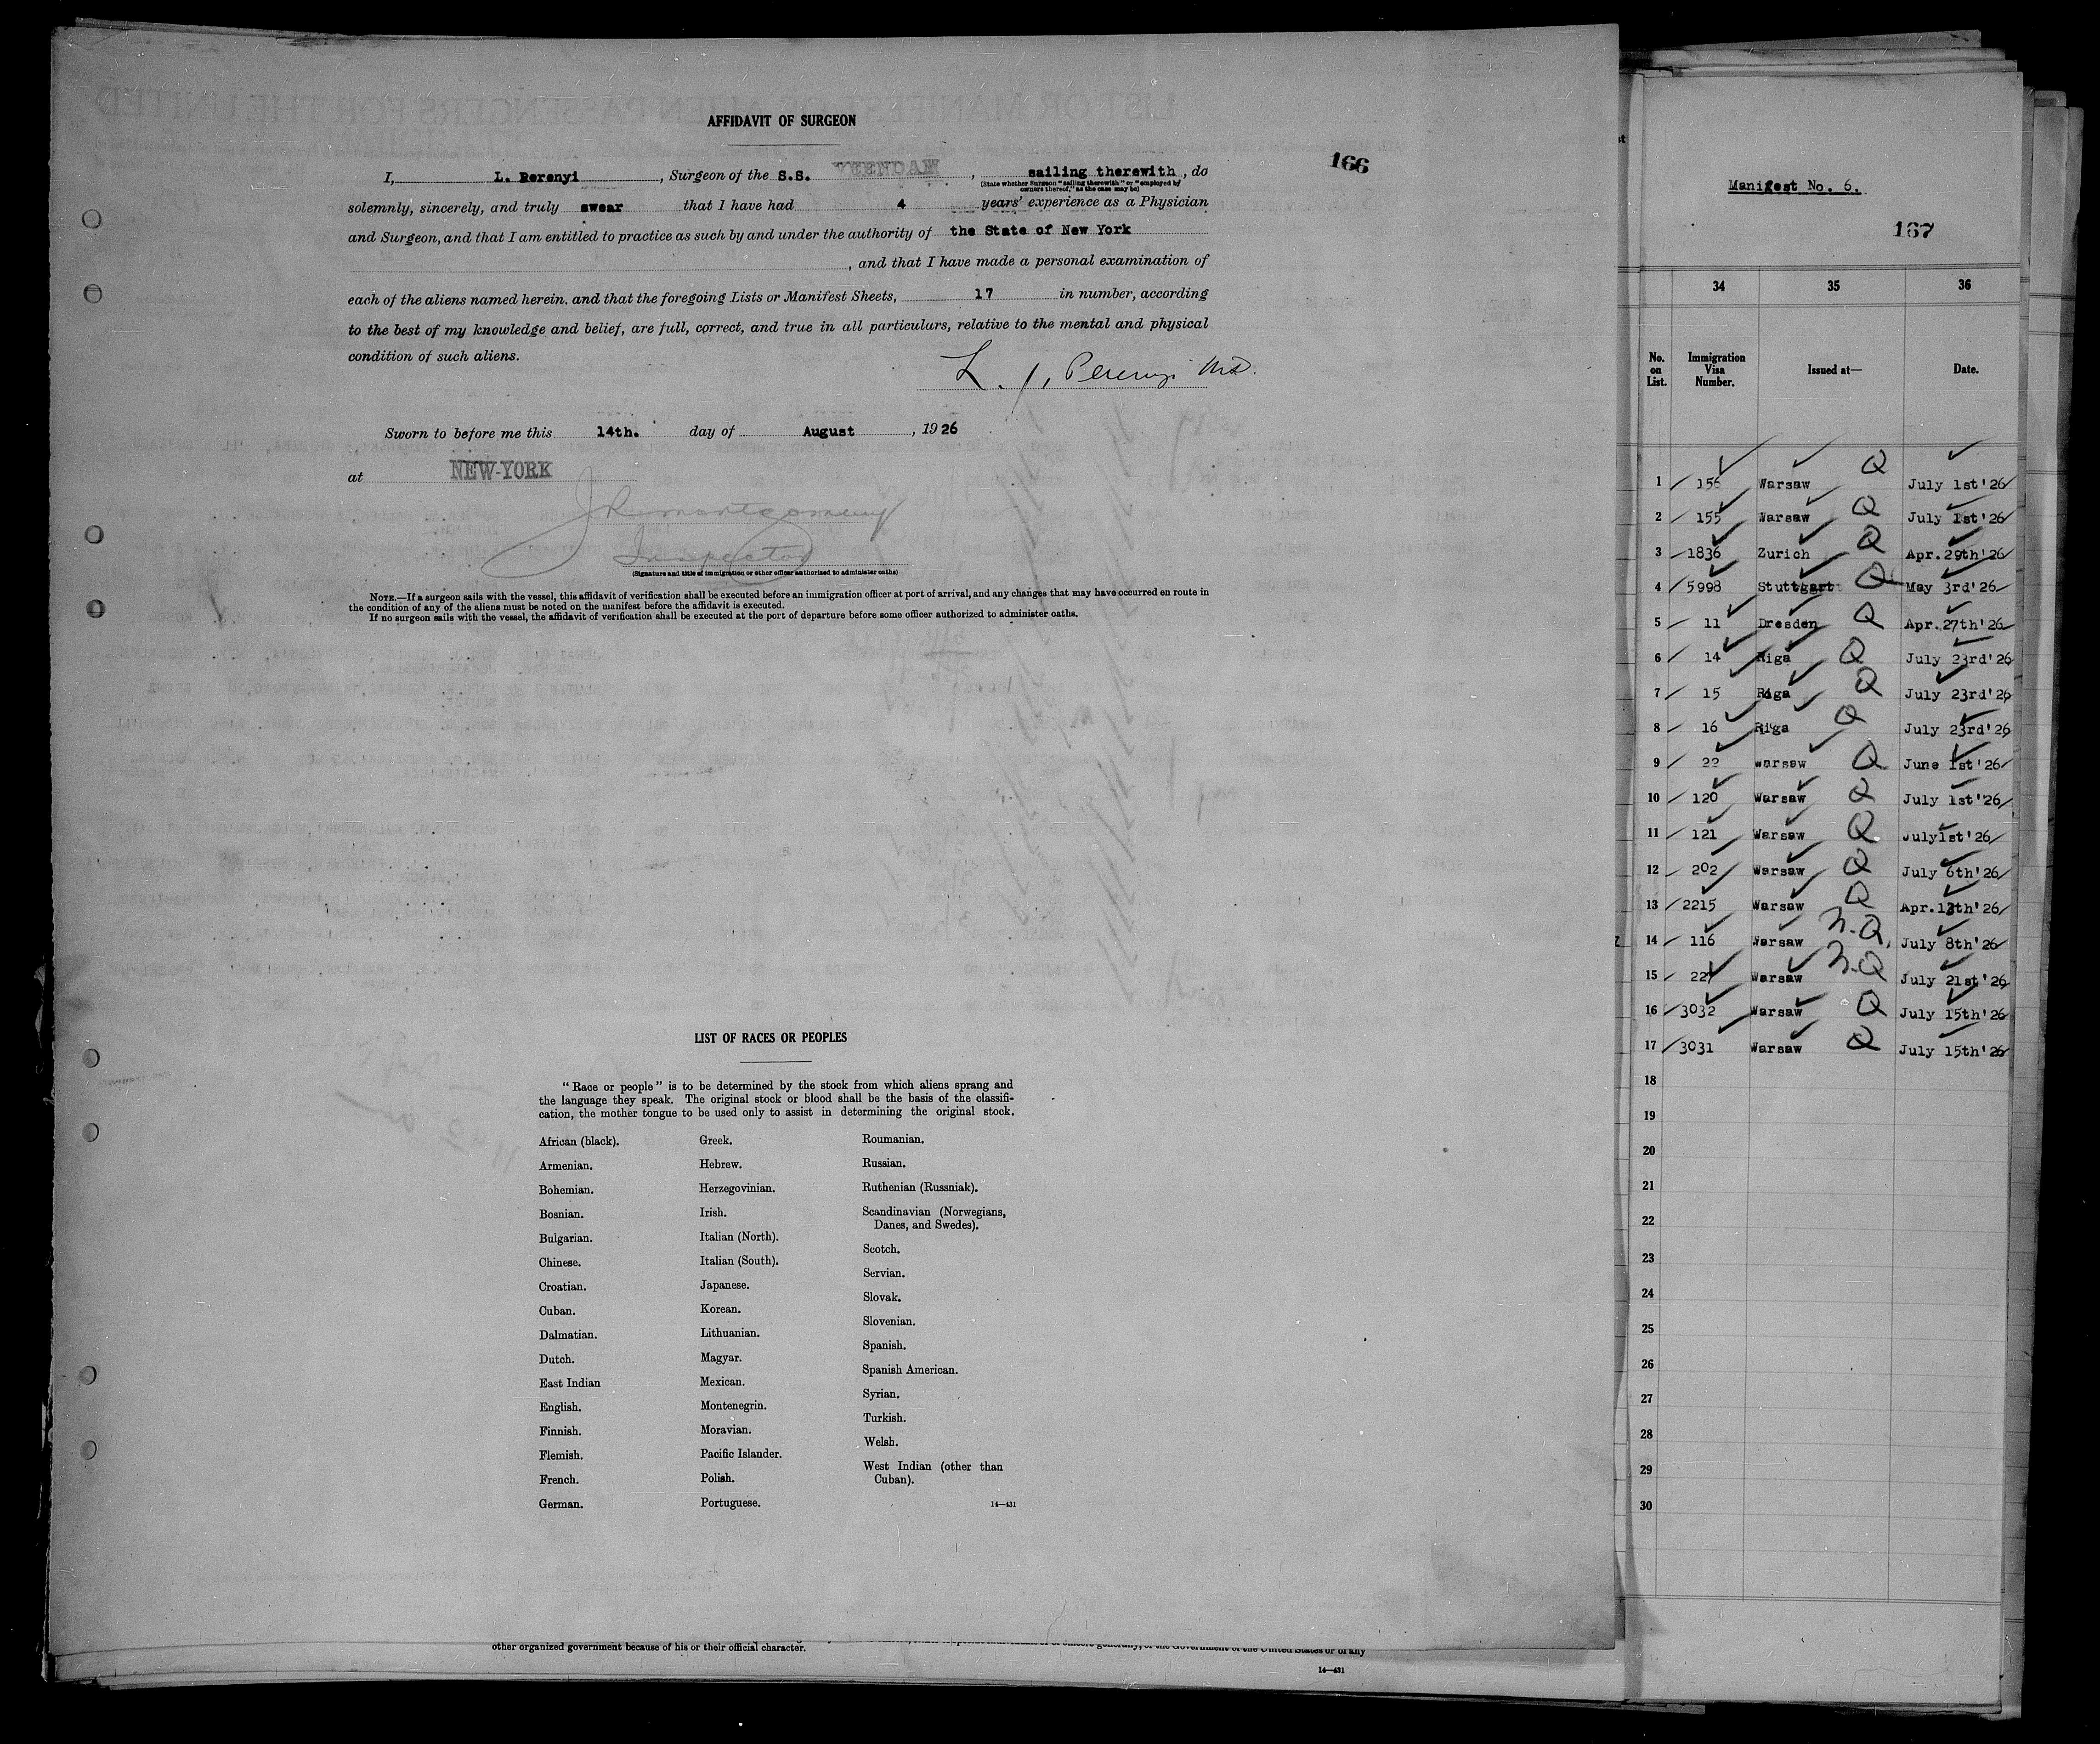 AFFIDAVIT OF SURGEON
166
I, L. Perenyi, Surgeon of the S.S. VEENDAM, sailing therewith, do
(State whether Surgeon "sailing therewith" or "employed by
owners thereof," as the case may be)
solemnly, sincerely, and truly swear that I have had 4 years' experience as a Physician
and Surgeon, and that I am entitled to practice as such by and under the authority of the State of New York
, and that I have made a personal examination of
each of the aliens named herein, and that the foregoing Lists or Manifest Sheets, 17 in number, according
to the best of my knowledge and belief, are full, correct, and true in all particulars, relative to the mental and physical
condition of such aliens.
L. J. Perenyi MD.
Sworn to before me this 14th. day of August, 1926
at NEW-YORK
J R Montgomery
Inspector
(Signature and title of immigration or other officer authorized to administer oaths)
NOTE.—If a surgeon sails with the vessel, this affidavit of verification shall be executed before an immigration officer at port of arrival, and any changes that may have occurred en route in
the condition of any of the aliens must be noted on the manifest before the affidavit is executed.
If no surgeon sails with the vessel, the affidavit of verification shall be executed at the port of departure before some officer authorized to administer oaths.
LIST OF RACES OR PEOPLES
"Race or people" is to be determined by the stock from which aliens sprang and
the language they speak. The original stock or blood shall be the basis of the classifi-
cation, the mother tongue to be used only to assist in determining the original stock.
African (black).
Armenian.
Bohemian.
Bosnian.
Bulgarian.
Chinese.
Croatian.
Cuban.
Dalmatian.
Dutch.
East Indian
English.
Finnish.
Flemish.
French.
German.
Greek.
Hebrew.
Herzegovinian.
Irish.
Italian (North).
Italian (South).
Japanese.
Korean.
Lithuanian.
Magyar.
Mexican.
Montenegrin.
Moravian.
Pacific Islander.
Polish.
Portuguese.
Roumanian.
Russian.
Ruthenian (Russniak).
Scandinavian (Norwegians,
Danes, and Swedes).
Scotch.
Servian.
Slovak.
Slovenian.
Spanish.
Spanish American.
Syrian.
Turkish.
Welsh.
West Indian (other than
Cuban).
14—431
other organized government because of his or their official character.
14—431
Manifest No. 6.
167
34 35 36
No. on List. Immigration Visa Number. Issued at— Date.
1 156 Warsaw Q July 1st'26
2 155 Warsaw Q July 1st'26
3 1836 Zurich Q Apr.29th'26
4 5998 Stuttgart Q May 3rd'26
5 11 Dresden Q Apr.27th'26
6 14 Riga Q July 23rd'26
7 15 Riga Q July 23rd'26
8 16 Riga Q July 23rd'26
9 22 warsaw Q June 1st'26
10 120 Warsaw Q July 1st'26
11 121 Warsaw Q July1st'26
12 202 Warsaw Q July 6th'26
13 2215 Warsaw Q Apr.13th'26
14 116 Warsaw N.Q. July 8th'26
15 Warsaw N.Q July 21st'26
16 3032 Warsaw Q July 15th'26
17 3031 Warsaw Q July 15th'26
18
19
20
21
22
23
24
25
26
27
28
29
30